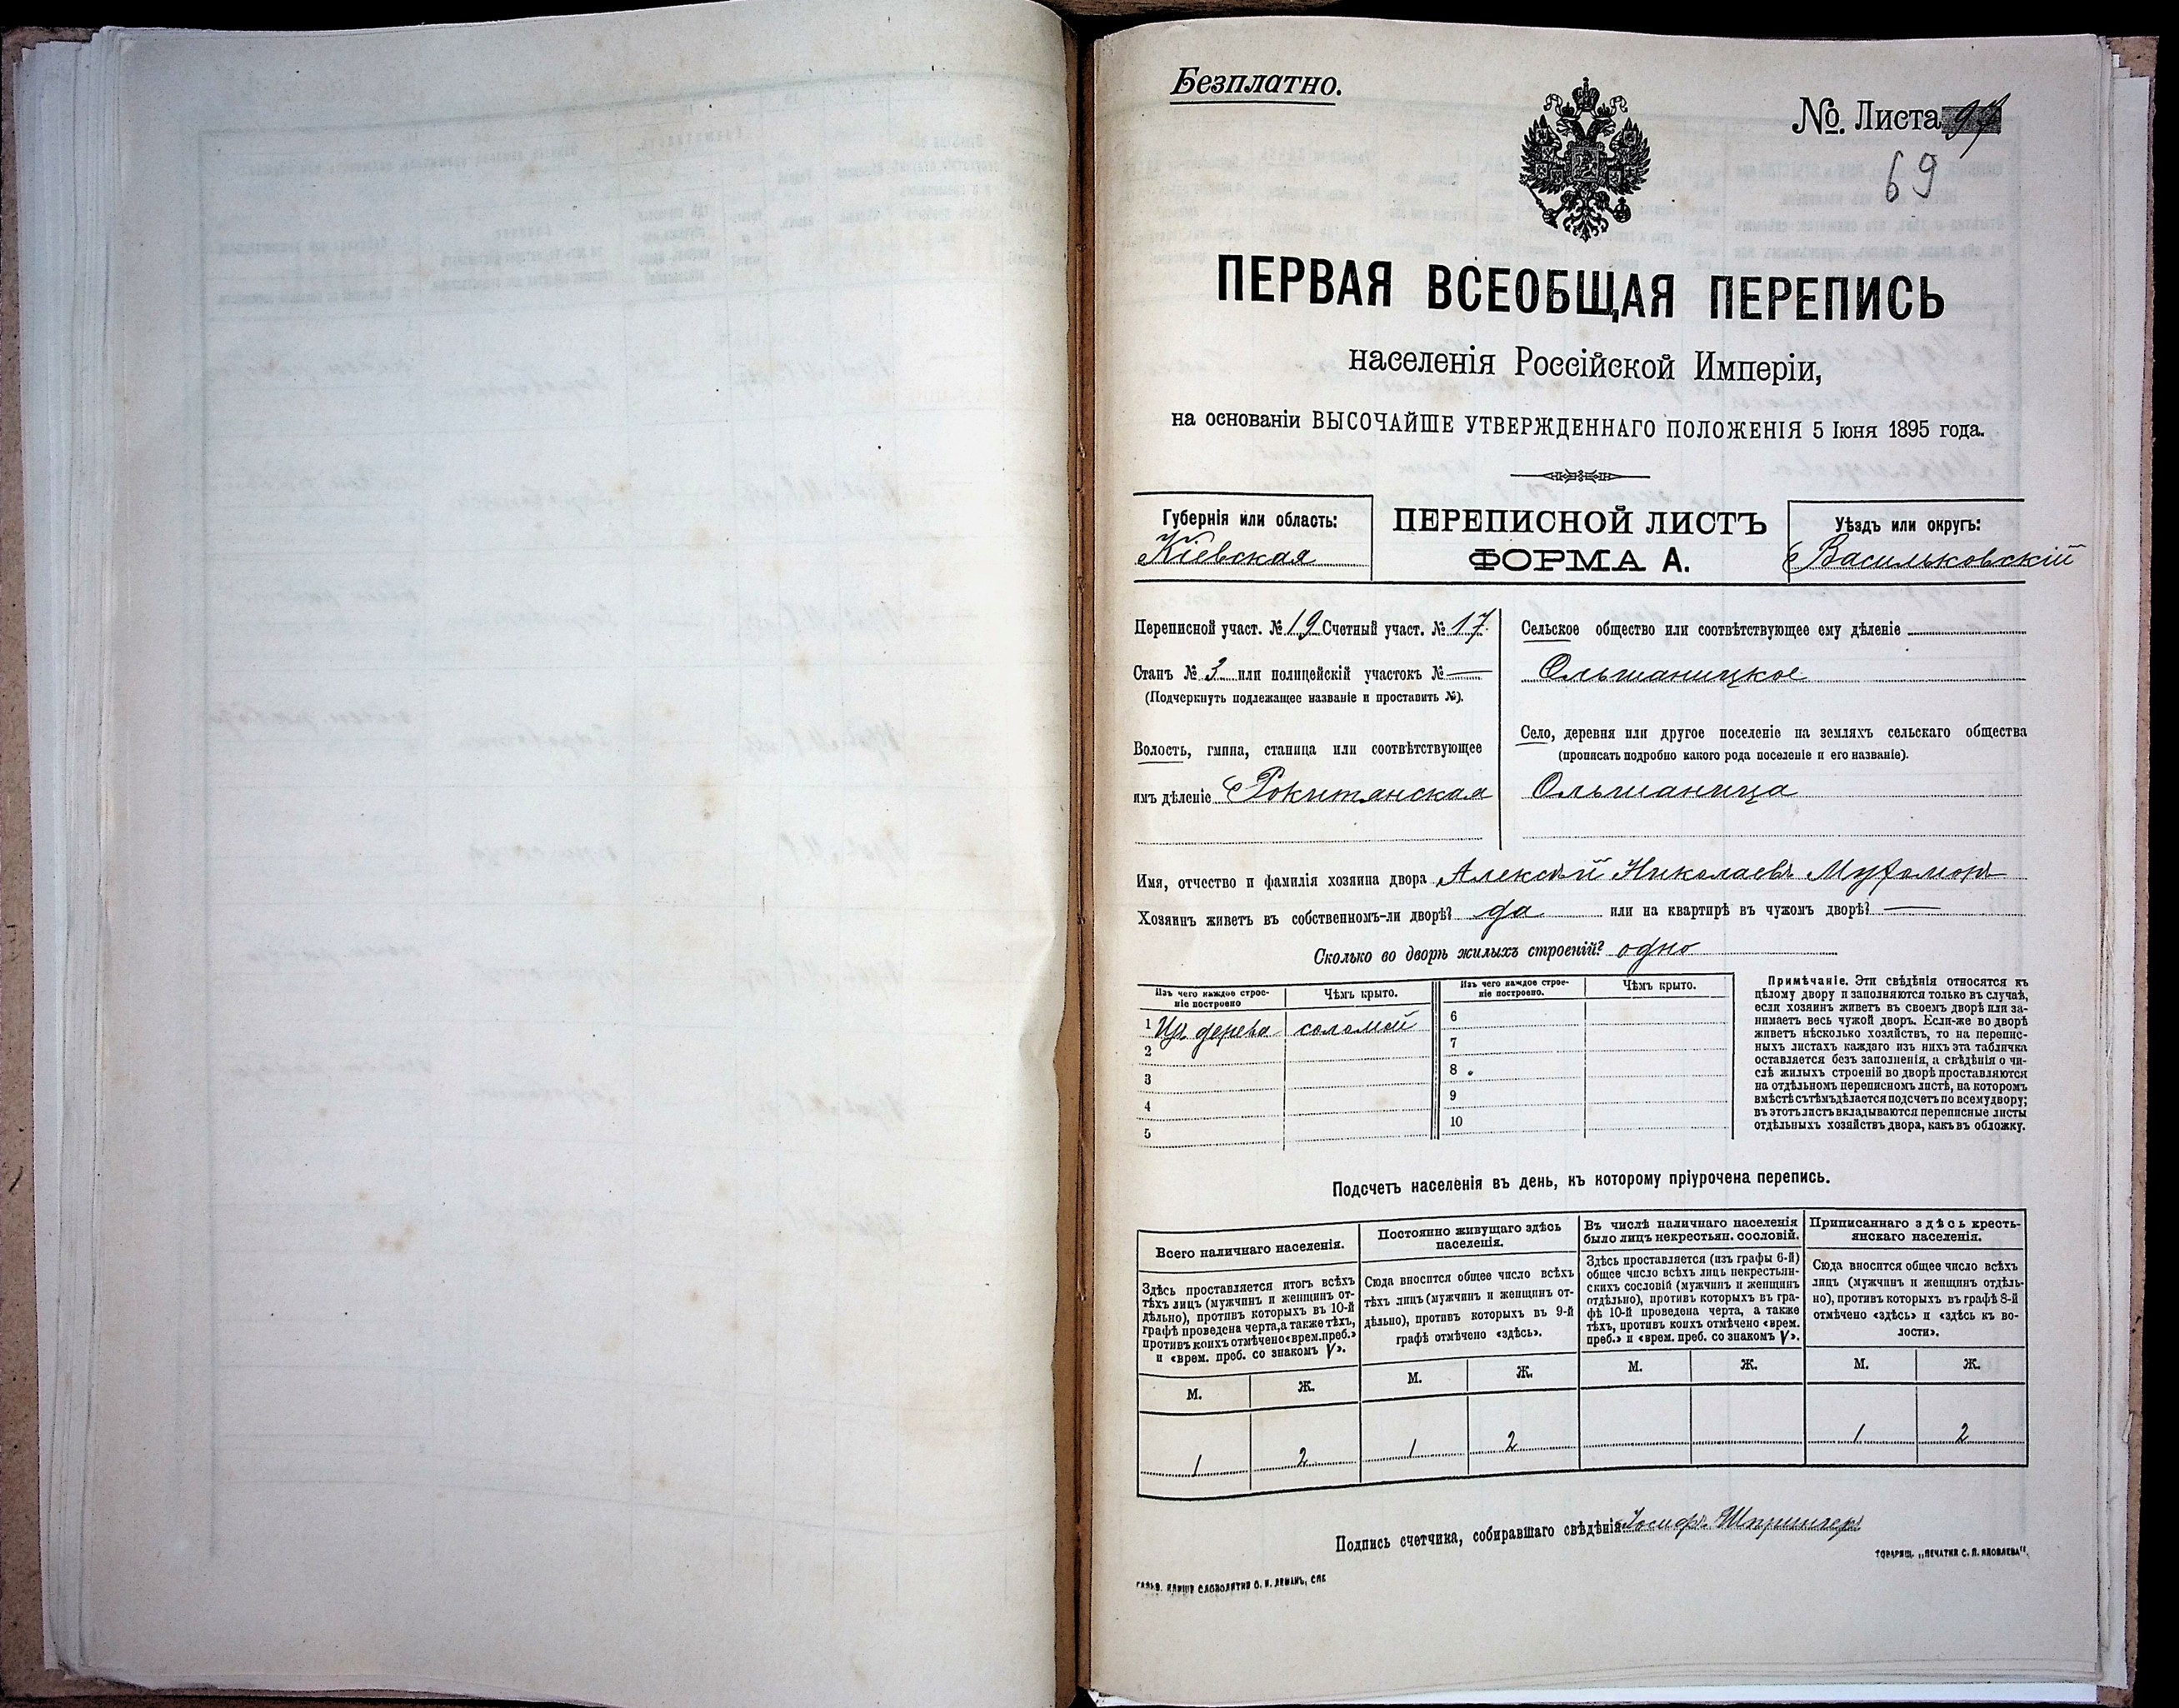 Безплатно.
№ Листа 97
69
ПЕРВАЯ ВСЕОБЩАЯ ПЕРЕПИСЬ
населенія Россійской Имперіи,
на основаніи ВЫСОЧАЙШЕ УТВЕРЖДЕННАГО ПОЛОЖЕНІЯ 5 Іюня 1895 года.
Губернія или область:
Кіевская
ПЕРЕПИСНОЙ ЛИСТЪ
ФОРМА А.
Уѣздъ или округъ:
Васильковскій
Переписной участ. № 19 Счетный участ. № 17.
Станъ № 3 или полицейскій участокъ № —
(Подчеркнуть подлежащее названіе и проставить №).
Волость, гмина, станица или соотвѣтствующее
имъ дѣленіе Рокитанская
Сельское общество или соотвѣтствующее ему дѣленіе
Ольшаницкое
Село, деревня или другое поселеніе на земляхъ сельскаго общества
(прописать подробно какого рода поселеніе и его названіе).
Ольшаница
Имя, отчество и фамилія хозяина двора Алексѣй Николаевъ Мухоморъ
Хозяинъ живетъ въ собственномъ-ли дворѣ? да или на квартирѣ въ чужомъ дворѣ? —
Сколько во дворѣ жилыхъ строеній? одно
Изъ чего каждое строе-
ніе построено
Чѣмъ крыто.
1 Изъ дерева соломой
2
3
4
5
Изъ чего каждое строе-
ніе построено.
Чѣмъ крыто.
6
7
8
9
10
Примѣчаніе. Эти свѣдѣнія относятся къ
цѣлому двору и заполняются только въ случаѣ,
если хозяинъ живетъ въ своемъ дворѣ или за-
нимаетъ весь чужой дворъ. Если-же во дворѣ
живетъ нѣсколько хозяйствъ, то на перепис-
ныхъ листахъ каждаго изъ нихъ эта табличка
оставляется безъ заполненія, а свѣдѣнія о чи-
слѣ жилыхъ строеній во дворѣ проставляются
на отдѣльномъ переписномъ листѣ, на которомъ
вмѣстѣ съ тѣмъ дѣлается подсчетъ по всему двору;
въ этотъ листъ вкладываются переписные листы
отдѣльныхъ хозяйствъ двора, какъ въ обложку.
Подсчетъ населенія въ день, къ которому пріурочена перепись.
Всего наличнаго населенія.
Здѣсь проставляется итогъ всѣхъ
тѣхъ лицъ (мужчинъ и женщинъ от-
дѣльно), противъ которыхъ въ 10-й
графѣ проведена черта, а также тѣхъ,
противъ коихъ отмѣчено «врем. преб.»
и «врем. преб. со знакомъ V».
М. Ж.
1 2
Постоянно живущаго здѣсь
населенія.
Сюда вносится общее число всѣхъ
тѣхъ лицъ (мужчинъ и женщинъ от-
дѣльно), противъ которыхъ въ 9-й
графѣ отмѣчено «здѣсь».
М. Ж.
1 2
Въ числѣ наличнаго населенія
было лицъ некрестьян. сословій.
Здѣсь проставляется (изъ графы 6-й)
общее число всѣхъ лицъ некрестьян-
скихъ сословій (мужчинъ и женщинъ
отдѣльно), противъ которыхъ въ гра-
фѣ 10-й проведена черта, а также
тѣхъ, противъ коихъ отмѣчено «врем.
преб.» и «врем. преб. со знакомъ V».
М. Ж.
Приписаннаго здѣсь кресть-
янскаго населенія.
Сюда вносится общее число всѣхъ
лицъ (мужчинъ и женщинъ отдѣль-
но), противъ которыхъ въ графѣ 8-й
отмѣчено «здѣсь» и «здѣсь къ во-
лости».
М. Ж.
1 2
Подпись счетчика, собиравшаго свѣдѣнія Іосифъ Шпрингеръ
ТОВАРИЩ. „ПЕЧАТНЯ С. П. ЯКОВЛЕВА".
ГАЛЬВ. КЛИШЕ СЛОВОЛИТНИ О. И. ЛЕМАНЪ, СПБ